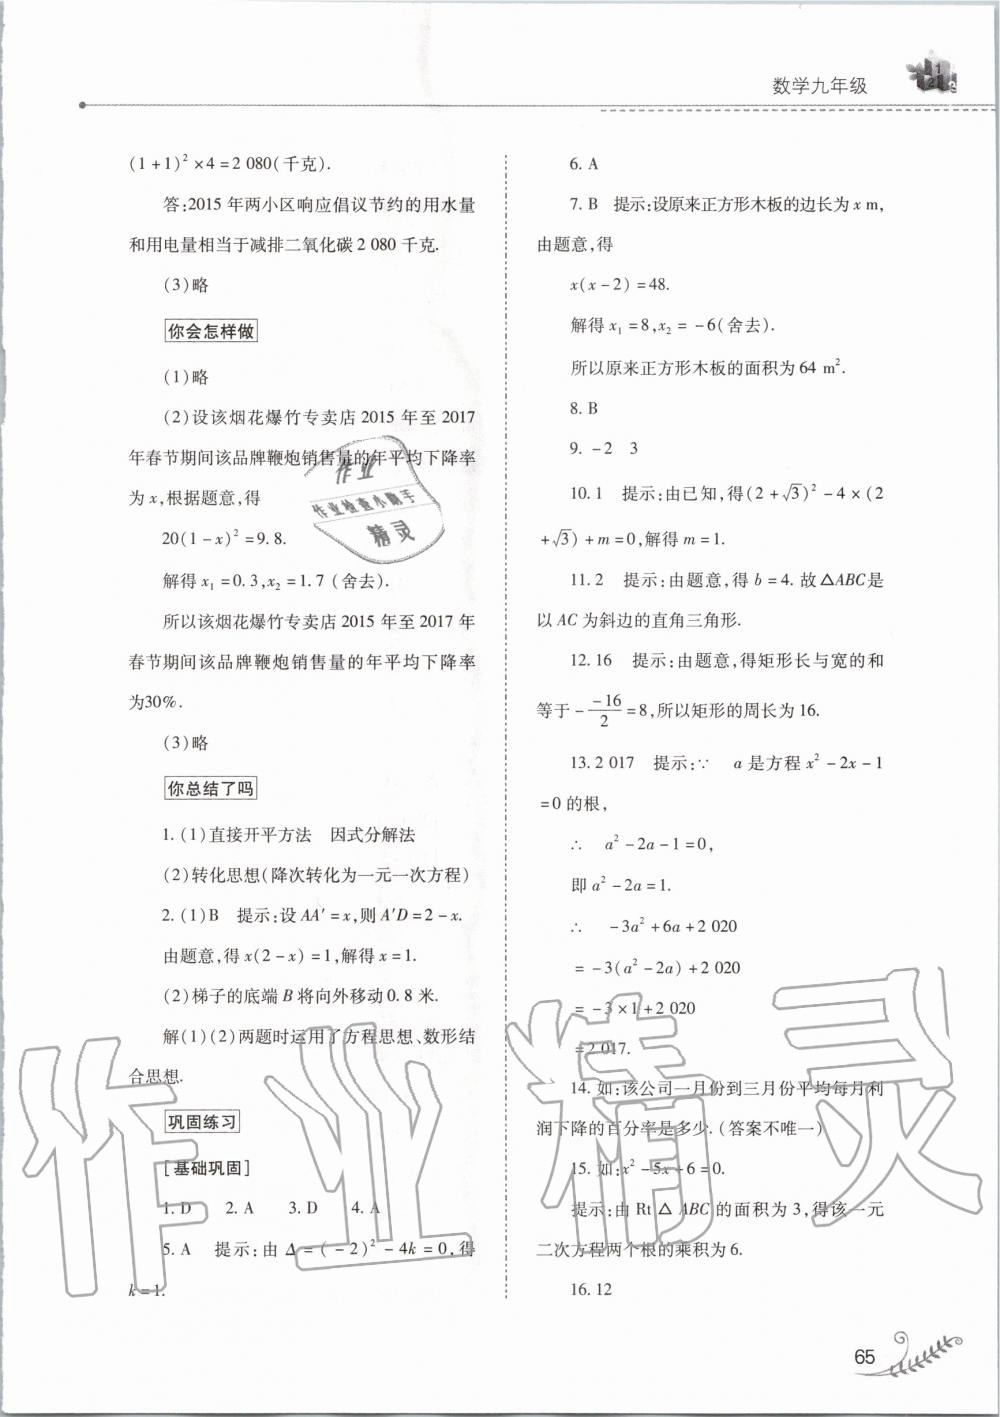 数学九年级
(1+1)²×4=2 080(千克).
答:2015年两小区响应倡议节约的用水量
和用电量相当于减排二氧化碳2 080千克.
(3)略
你会怎样做
(1)略
(2)设该烟花爆竹专卖店2015年至2017
年春节期间该品牌鞭炮销售量的年平均下降率
为x,根据题意,得
20(1-x)²=9.8.
解得x₁=0.3,x₂=1.7(舍去).
所以该烟花爆竹专卖店2015年至2017年
春节期间该品牌鞭炮销售量的年平均下降率
为30%.
(3)略
你总结了吗
1.(1)直接开平方法 因式分解法
(2)转化思想(降次转化为一元一次方程)
2.(1)B 提示:设AA′=x,则A′D=2-x.
由题意,得x(2-x)=1,解得x=1.
(2)梯子的底端B将向外移动0.8米.
解(1)(2)两题时运用了方程思想、数形结
合思想.
巩固练习
[基础巩固]
1.D 2.A 3.D 4.A
5.A 提示:由Δ=(-2)²-4k=0,得
k=1.
6.A
7.B 提示:设原来正方形木板的边长为x m,
由题意,得
x(x-2)=48.
解得x₁=8,x₂=-6(舍去).
所以原来正方形木板的面积为64 m².
8.B
9.-2 3
10.1 提示:由已知,得(2+√3)²-4×(2
+√3)+m=0,解得m=1.
11.2 提示:由题意,得b=4.故△ABC是
以AC为斜边的直角三角形.
12.16 提示:由题意,得矩形长与宽的和
等于-\frac{-16}{2}=8,所以矩形的周长为16.
13.2 017 提示:∵ a是方程x²-2x-1
=0的根,
∴ a²-2a-1=0,
即a²-2a=1.
∴ -3a²+6a+2 020
=-3(a²-2a)+2 020
=-3×1+2 020
=2 017.
14.如:该公司一月份到三月份平均每月利
润下降的百分率是多少.(答案不唯一)
15.如:x²-5x+6=0.
提示:由Rt△ABC的面积为3,得该一元
二次方程两个根的乘积为6.
16.12
65
作业
作业检查小助手
精灵
作业精灵